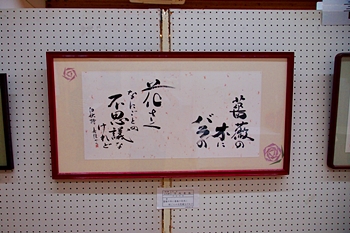 薔薇の
木に
バラの
花さく
なにごとの
不思議な
けれど